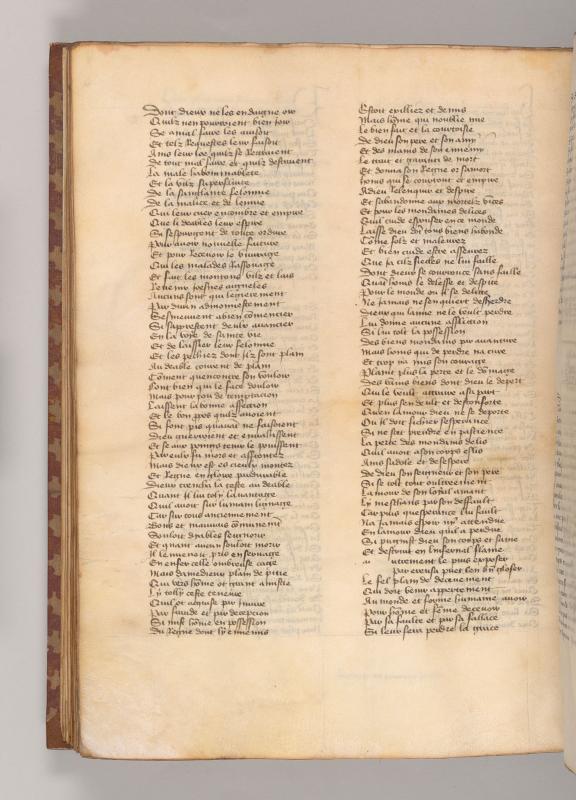 Dont dieux ne les endaigne oir
Quilz nen pourroient bien ioir
Se a mal faire les
Et telz Requestes leur faisoit
Ains leur loe quilz se
De tout mal faire et quilz
La male habominablete
Et la vilz superfluite
De la sanglante felonnie
De la malice et de lenuie
Qui leur cuer encombre et empire
Que li deables leur espire
Silz sespurgent de toute ordure
Pour auoir nouuelle
Et pour Receuoir le
Qui les malades
Et fait les moutons vilz et lais
Retenir aignelez
Aucuns sont qui legierement
Par diuin admonnestement
Sesmeuuent a bien commencier
Si sapressent deulx auancier
En la voye de sainte vie
Et de laissier leur felonnie
Et les pechiez dont ilz sont plain
Au deable couuent de plain
Comment quencontre son vouloir
Sont bien qui le face douloir
Mais pour pou de temptacion
Laissent la bonne affection
Et le bon pos quilz auoient
Si sont pis quauant ne faisoient
Dieu guerroient et enuaissent
Et se aux poins tenir le peussent
Par eulx fu mors et
Mais dieux est es cieulx montez
Et Regne en gloire pardurable
Dieux trencha la teste au deable
Quant il lui toly lauantage
Quil auoit sur lumain lignage
Car sur tous anciennement
Bons et mauuais communement
Souloit deables seurnoir
Et quant aucun souloit morir
Il le menoit pris en seruage
En enfer celle ombreuse cage
Mais damedieux plain de pitie
Qui vers homme ot grant amistie
Ly tolly ceste
Quil ot acquise par
Par fraude et par decepcion
Si mist homme en possession
Du Regne dont
Estoit exilliez et
Mais homme qui noublie mie
Le bien fait et la courtoisie
De dieu son pere et son amy
Et des mains de son ennemy
Le trait et garanti de mort
Et donna son Regne
homs qui se et empire
A dieu Relenquir et despire
Et sabandonne aux mortelz vices
Et pour les mondaines delices
Quil cuide espuiser en ce monde
Laisse dieu dont tous biens habonde
Comme folz et maleurez
Et bien cuide estre asseurez
Que ia cilz siecles ne lui faille
Dont dieux se courrouce sans faille
Quant homs le delesse et despite
Pour le monde ou il se delite
Ne iamais ne sen quiert desherdre
Dieux qui laime ne le veult perdre
Lui donne aucune affliction
Si lui tolt la possession
Des biens mondains par auanture
Mais homs qui de perdre na cure
Et trop a mis son courage
Plaint plus la perte et le dommage
Des vains biens dont dieu le depert
Qui le veult attraire a sa part
Et plus sen deult et desconforte
Quen lamour dieu ne se deporte
Ou il doit fichier sesperance
Si ne scet prendre en pascience
La perte des mondains delis
Quil auoit a son corps eslis
Ains sadole et desespere
De dieu son seigneur et son pere
Si se tolt tout oultreement
Lamour de son loyal amant
Ly meschans par son deffault
Car puis quesperance lui fault
Na iamais espoir ny attendue
En lamour dieu quil a perdue
Si punist dieu son corps et
Et destruit en linfernal flame
Autrement le puis exposer
Par exensa puet len bien gloser
Le fel plain de deceuement
Qui doit venir appertement
Au monde et forme humaine auoir
Pour homme et femme deceuoir
Par sa faulte et par sa fallace
Si leur fera perdre la grace